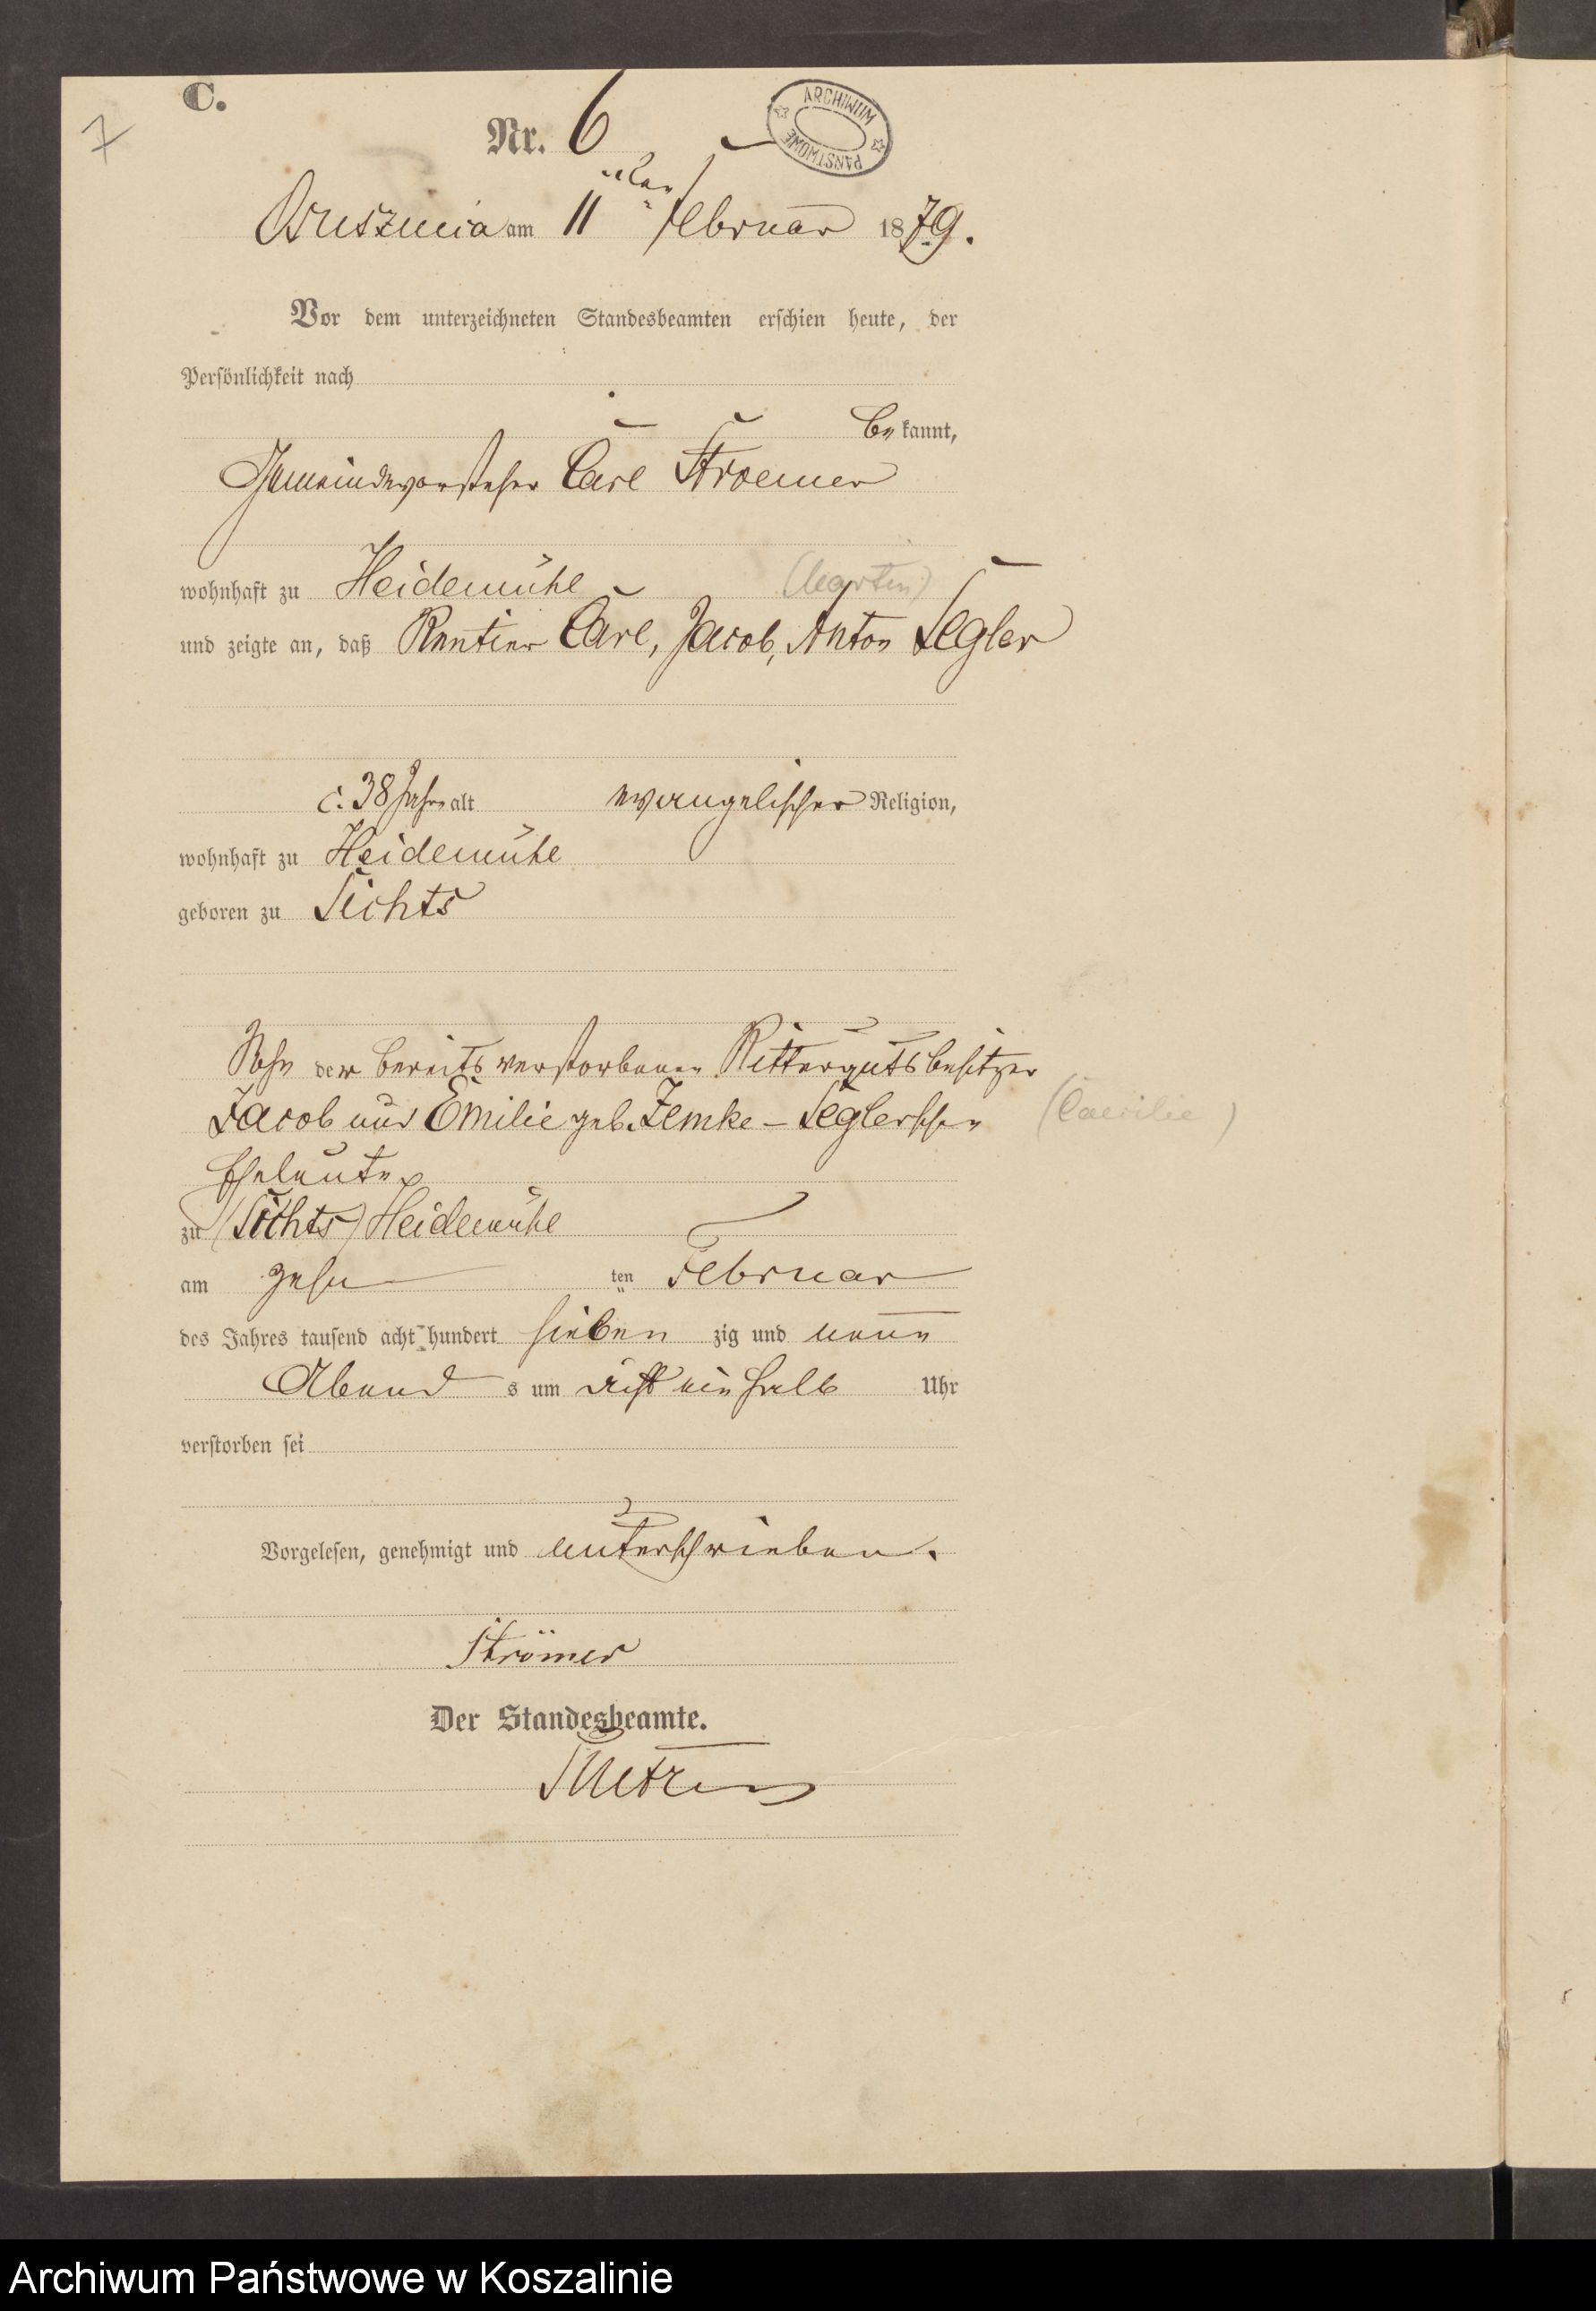 C.
7
Nr. 6
ARCHIWUM PAŃSTWOWE
am 11 ten Februar 1879.
Vor dem unterzeichneten Standesbeamten erschien heute, der
Persönlichkeit nach
bekannt,
Gemeindevorsteher Carl Stroemer
wohnhaft zu Heidemühl (Martin)
und zeigte an, daß Rentier Carl, Jacob, Anton Segler
c. 38 Jahre alt evangelischer Religion,
wohnhaft zu Heidemühl
geboren zu Sichts
Sohn der bereits verstorbenen Rittergutsbesitzer
Jacob und Emilie geb. Zemke - Seglerschen (Caecilie)
Eheleute
zu (Sichts) Heidemühl
am zehn ten Februar
des Jahres tausend acht hundert sieben zig und neun
Abend s um acht ein halb Uhr
verstorben sei
Vorgelesen, genehmigt und unterschrieben.
Strömer
Der Standesbeamte.
Archiwum Państwowe w Koszalinie